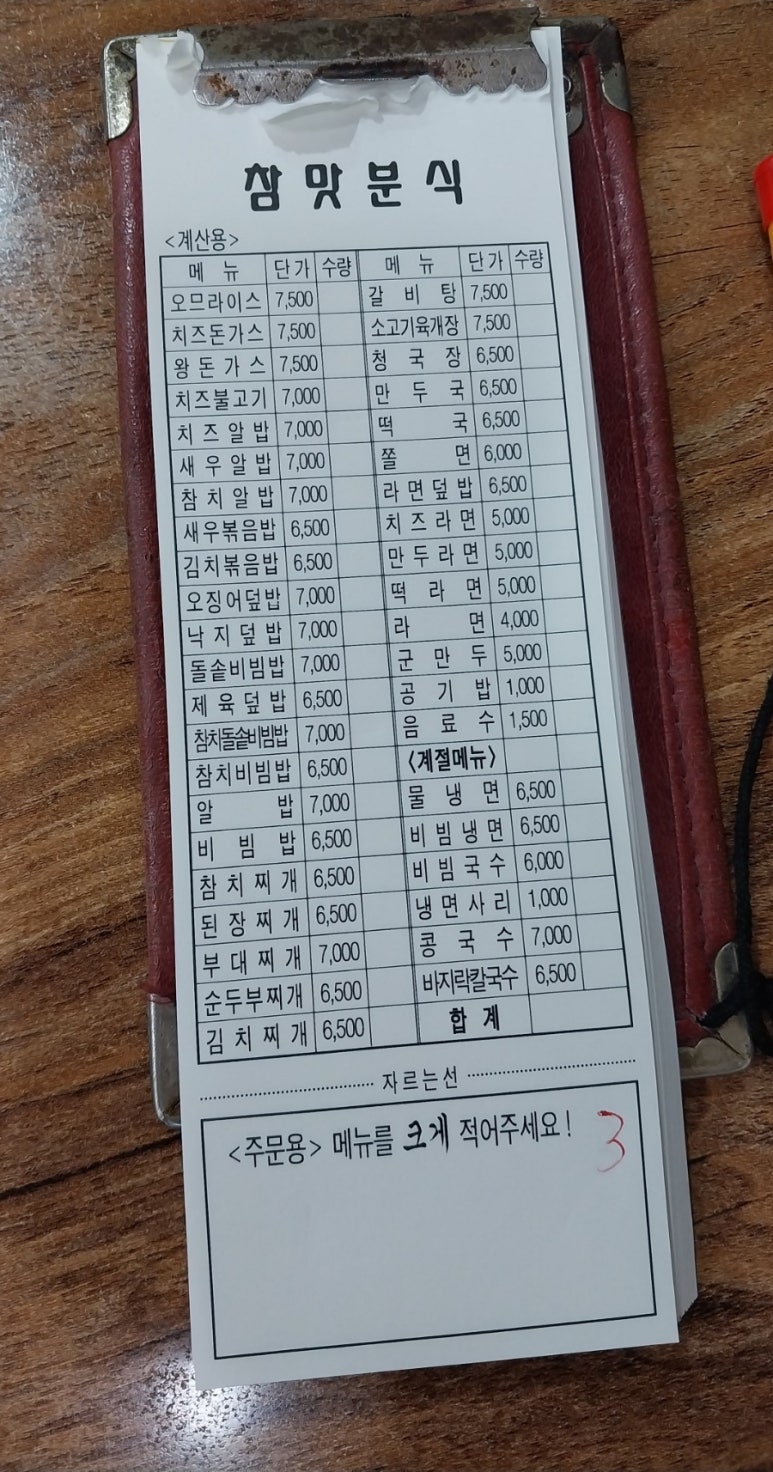 참맛분식
<계산용>
메 뉴 단가 수량 메 뉴 단가 수량
오므라이스 7,500 갈 비 탕 7,500
치즈돈가스 7,500 소고기육개장 7,500
왕 돈 가 스 7,500 청 국 장 6,500
치즈불고기 7,000 만 두 국 6,500
치 즈 알 밥 7,000 떡 국 6,500
새 우 알 밥 7,000 쫄 면 6,000
참 치 알 밥 7,000 라 면 덮 밥 6,500
새우볶음밥 6,500 치 즈 라 면 5,000
김치볶음밥 6,500 만 두 라 면 5,000
오징어덮밥 7,000 떡 라 면 5,000
낙 지 덮 밥 7,000 라 면 4,000
돌솥비빔밥 7,000 군 만 두 5,000
제 육 덮 밥 6,500 공 기 밥 1,000
참치돌솥비빔밥 7,000 음 료 수 1,500
참치비빔밥 6,500 <계절메뉴>
알 밥 7,000 물 냉 면 6,500
비 빔 밥 6,500 비 빔 냉 면 6,500
참 치 찌 개 6,500 비 빔 국 수 6,000
된 장 찌 개 6,500 냉 면 사 리 1,000
부 대 찌 개 7,000 콩 국 수 7,000
순두부찌개 6,500 바지락칼국수 6,500
김 치 찌 개 6,500 합 계
자르는선
<주문용> 메뉴를 크게 적어주세요! 3